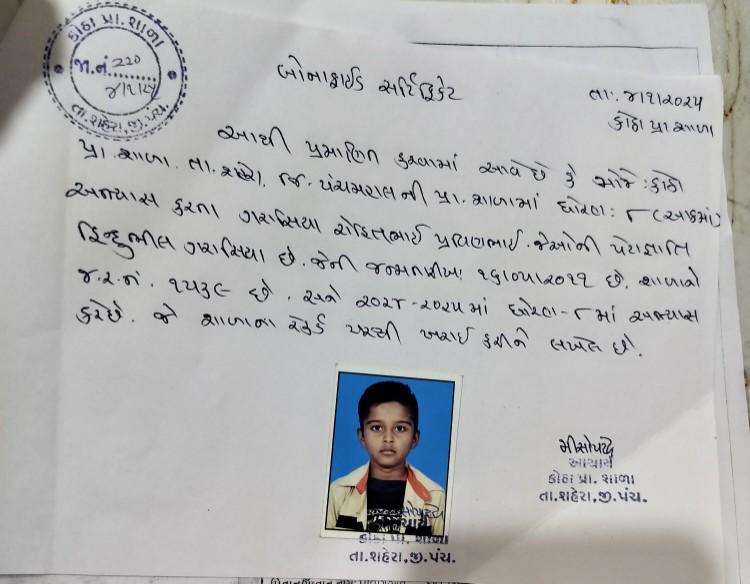 કોઠા પ્રા. શાળા
જા.નં. ૨૨૦
૪/૧/૨૫
તા.શહેરા,જી.પંચ.
બોનાફાઈડ સર્ટિફિકેટ
તા:- ૪/૧/૨૦૨૫
કોઠા પ્રા શાળા
આથી પ્રમાણિત કરવામાં આવે છે કે મોજે : કોઠા
પ્રા. શાળા. તા. શહેરા, જિ. પંચમહાલ ની પ્રા. શાળામાં ધોરણ : ૮ (આઠમાં)
અભ્યાસ કરતા ગરાસિયા રોહિતભાઈ પ્રવિણભાઈ. જેઓની પેટાજ્ઞાતિ
હિન્દુ ભીલ ગરાસિયા છે. જેની જન્મતારીખ: છે. શાળાનો
જ.ર.નં. ૧૫૩૯ છે. અને ૨૦૨૪-૨૦૨૫ માં ધોરણ-૮ માં અભ્યાસ
કરે છે. જે શાળાના રેકર્ડ પરથી ખરાઈ કરીને લખેલ છે.
આચાર્ય
કોઠા પ્રા. શાળા
તા.શહેરા,જી.પંચ.
આચાર્ય
કોઠા પ્રા. શાળા
તા.શહેરા,જી.પંચ.